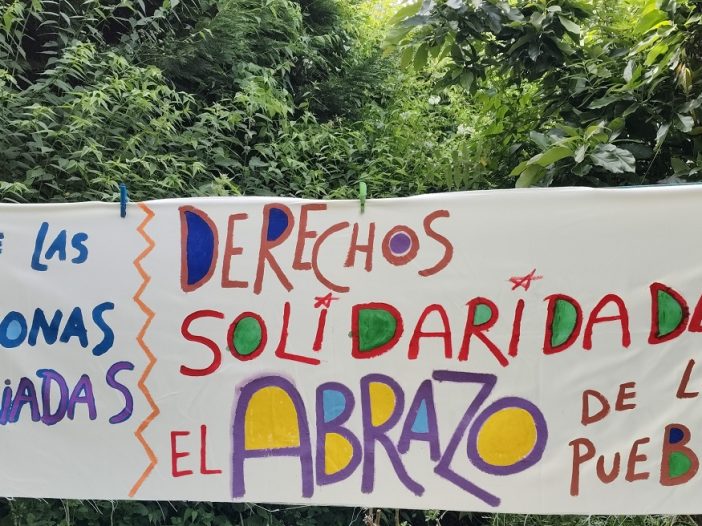 E LAS
ONAS
IADAS
DERECHOS
SOLIDARIDAD
EL ABRAZO
DE L
PUEB